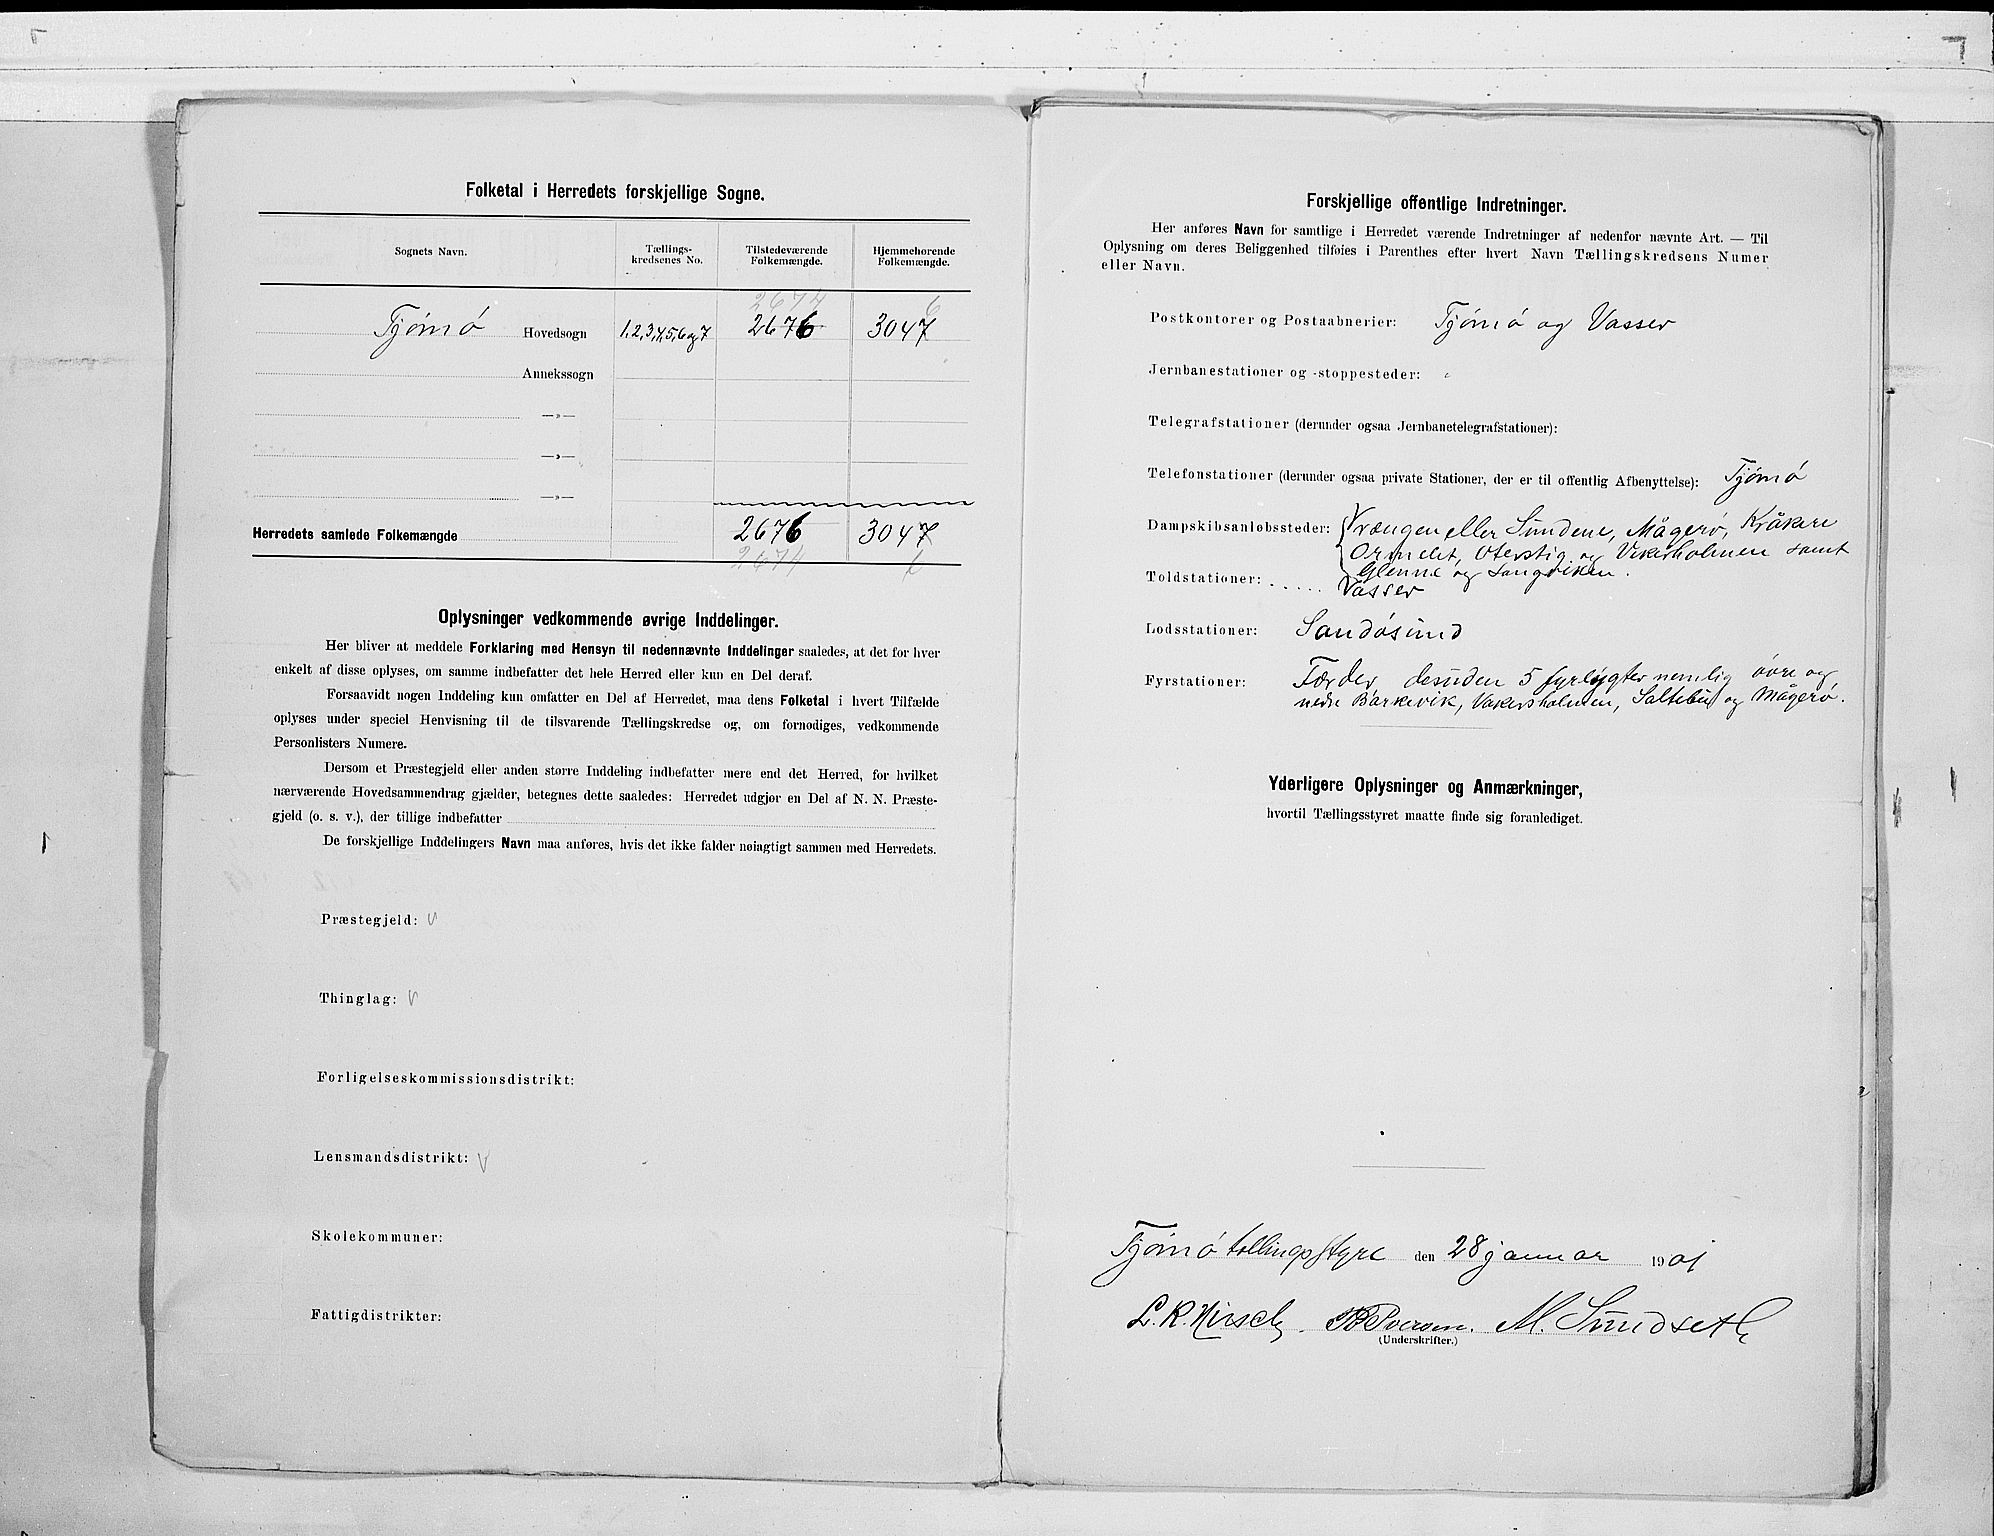 Folketal i Herredets forskjellige Sogne.
Sognets Navn.
Tællings-
kredsenes No.
Tilstedeværende
Folkemængde.
Hjemmehørende
Folkemængde.
2674 6
Tjømø Hovedsogn 1,2,3,4,5,6 og 7 2676 3047
Annekssogn
—»—
—»—
—»—
Herredets samlede Folkemængde 2676 3047
2674 6
Oplysninger vedkommende øvrige Inddelinger.
Her bliver at meddele Forklaring med Hensyn til nedennævnte Inddelinger saaledes, at det for hver
enkelt af disse oplyses, om samme indbefatter det hele Herred eller kun en Del deraf.
Forsaavidt nogen Inddeling kun omfatter en Del af Herredet, maa dens Folketal i hvert Tilfælde
oplyses under speciel Henvisning til de tilsvarende Tællingskredse og, om fornødiges, vedkommende
Personlisters Numere.
Dersom et Præstegjeld eller anden større Inddeling indbefatter mere end det Herred, for hvilket
nærværende Hovedsammendrag gjælder, betegnes dette saaledes: Herredet udgjør en Del af N. N. Præste-
gjeld (o. s. v.), der tillige indbefatter
De forskjellige Inddelingers Navn maa anføres, hvis det ikke falder nøiagtigt sammen med Herredets.
Præstegjeld: v
Thinglag: v
Forligelseskommissionsdistrikt:
Lensmandsdistrikt: v
Skolekommuner:
Fattigdistrikter:
Forskjellige offentlige Indretninger.
Her anføres Navn for samtlige i Herredet værende Indretninger af nedenfor nævnte Art. — Til
Oplysning om deres Beliggenhed tilføies i Parenthes efter hvert Navn Tællingskredsens Numer
eller Navn.
Postkontorer og Postaabnerier: Tjømø og Vasser
Jernbanestationer og -stoppesteder:
Telegrafstationer (derunder ogsaa Jernbanetelegrafstationer):
Telefonstationer (derunder ogsaa private Stationer, der er til offentlig Afbenyttelse): Tjømø
Dampskibsanløbssteder: Vrængen eller Sundene, Mågerø, Kråkere
Ormelet, Oterstig og Vakersholmen samt
Glenne og Langviken.
Toldstationer: Vasser
Lodsstationer: Sandøsund
Fyrstationer: Færder, desuden 5 fyrlygter nemlig øvre og
nedre Barkevik, Vakersholmen, Saltebu og Mågerø.
Yderligere Oplysninger og Anmærkninger,
hvortil Tællingsstyret maatte finde sig foranlediget.
Tjømø tællingsstyre den 28 januar 1901
L. R. Hirsch. Iversen. M. Sundseth
(Underskrifter.)